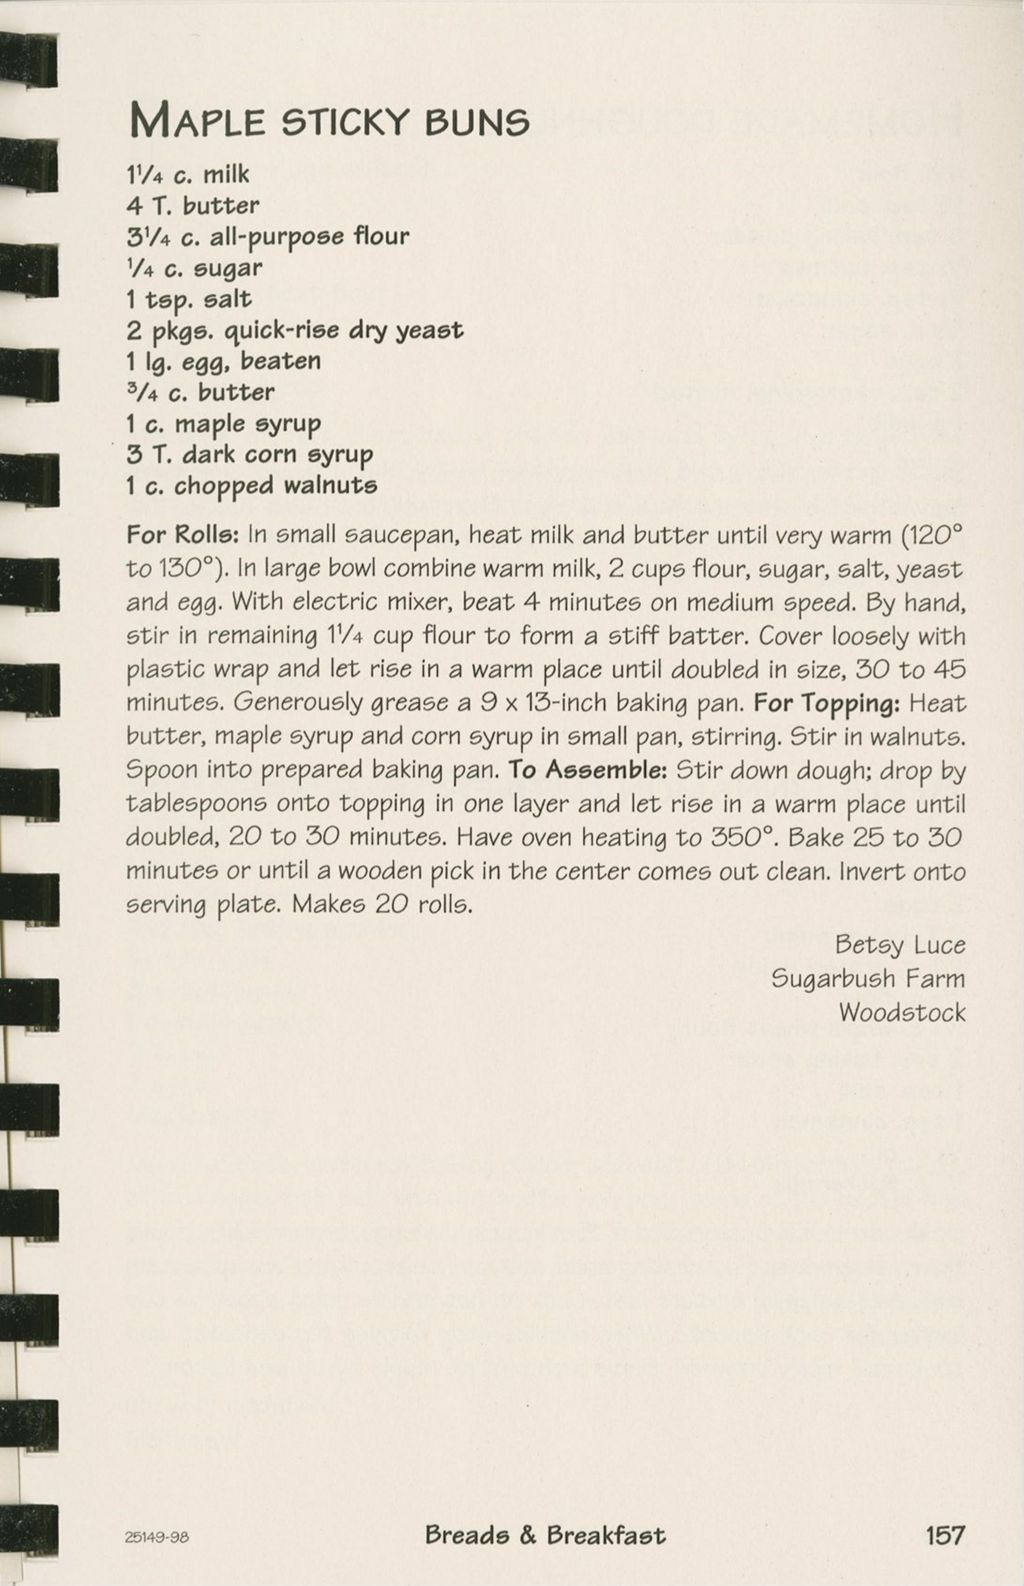 MAPLE STICKY BUNS
1¹/4 c. milk
4 T. butter
3¹/4 c. all-purpose flour
¹/4 c. sugar
1 tsp. salt
2 pkgs. quick-rise dry yeast
1 lg. egg, beaten
³/4 c. butter
1 c. maple syrup
3 T. dark corn syrup
1 c. chopped walnuts
For Rolls: In small saucepan, heat milk and butter until very warm (120°
to 130°). In large bowl combine warm milk, 2 cups flour, sugar, salt, yeast
and egg. With electric mixer, beat 4 minutes on medium speed. By hand,
stir in remaining 1¹/4 cup flour to form a stiff batter. Cover loosely with
plastic wrap and let rise in a warm place until doubled in size, 30 to 45
minutes. Generously grease a 9 x 13-inch baking pan. For Topping: Heat
butter, maple syrup and corn syrup in small pan, stirring. Stir in walnuts.
Spoon into prepared baking pan. To Assemble: Stir down dough; drop by
tablespoons onto topping in one layer and let rise in a warm place until
doubled, 20 to 30 minutes. Have oven heating to 350°. Bake 25 to 30
minutes or until a wooden pick in the center comes out clean. Invert onto
serving plate. Makes 20 rolls.
Betsy Luce
Sugarbush Farm
Woodstock
25149-98
Breads & Breakfast
157